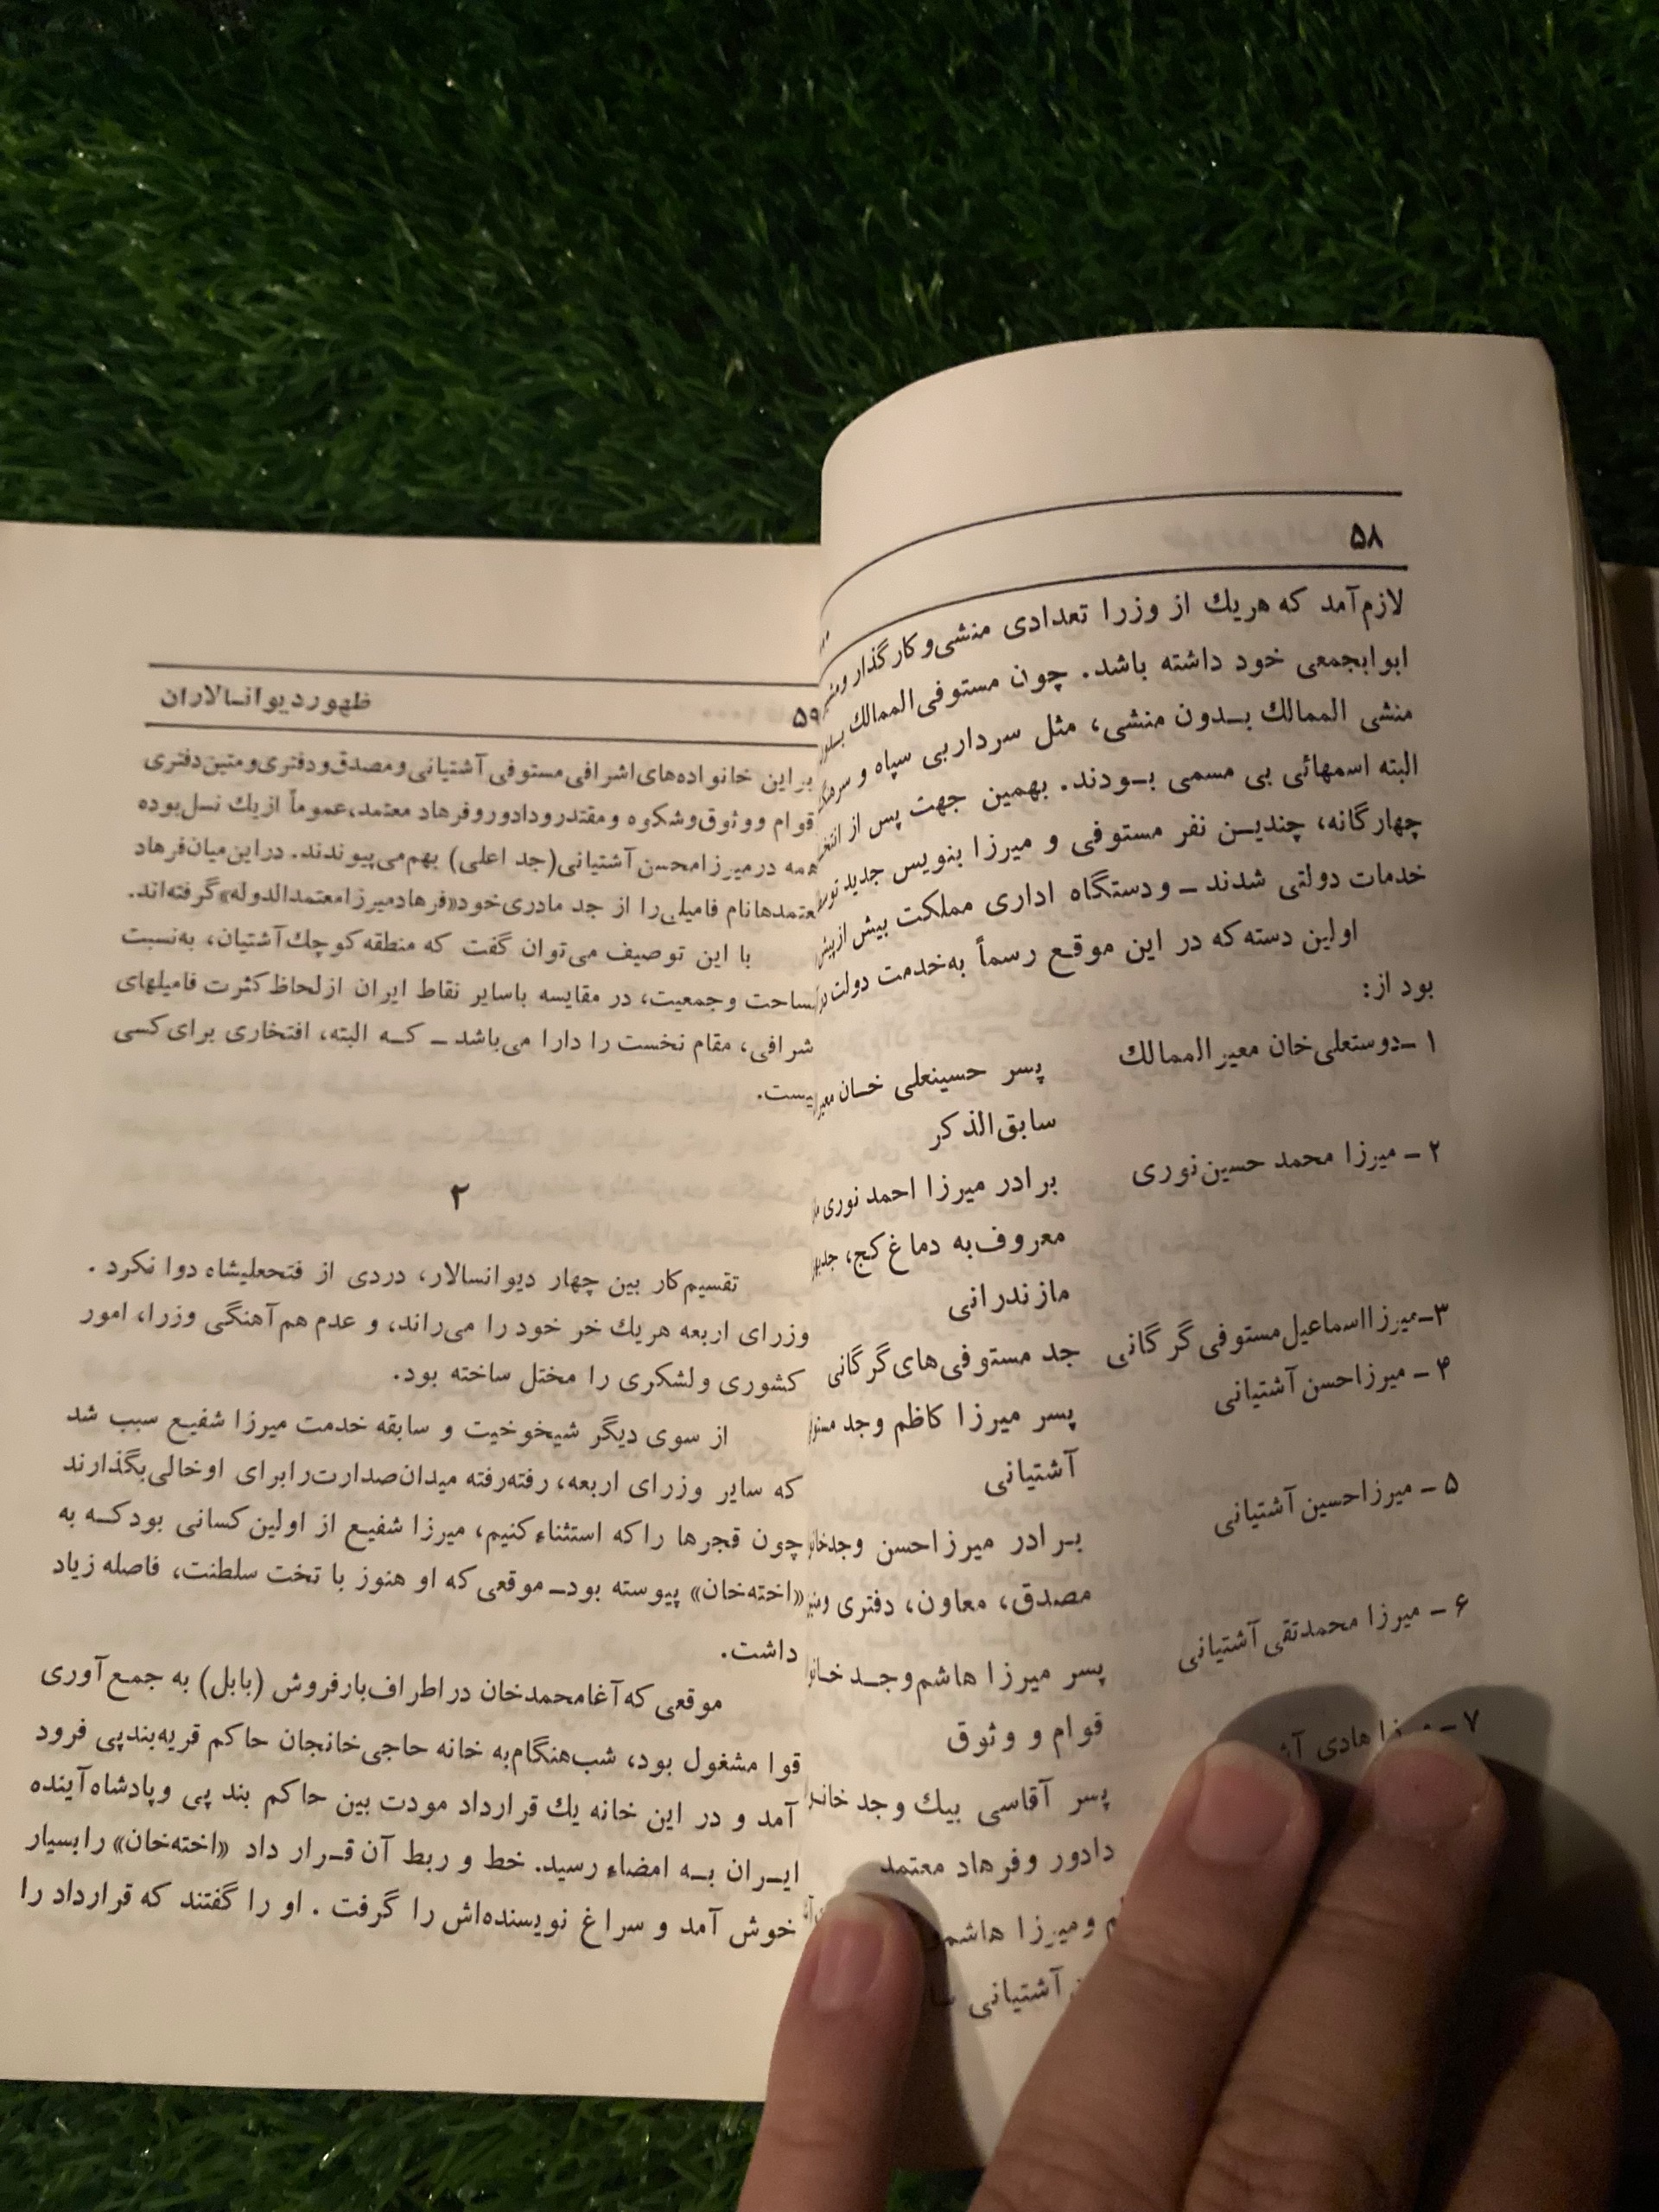 ۵۸
لازم‌آمد که هریك از وزرا تعدادی منشی‌و کارگذار
ابوابجمعی خود داشته باشد. چون مستوفی‌الممالك
منشی الممالك بـدون منشی، مثل سرداربی سپاه و
البته اسمهائی بی مسمی بـودند. بهمین جهت پس از
چهارگانه، چندیـن نفر مستوفی و میرزا بنویس جدید
خدمات دولتی شدند ـ ودستگاه اداری مملکت بیش ازپیش
اولین دسته‌که در این موقع رسماً به‌خدمت دولت
بود از:
۱ـدوستعلی‌خان معیرالممالك پسر حسینعلی خـان
سابق‌الذکر
۲ـ میرزا محمد حسین‌نوری برادر میرزا احمد نوری
معروف‌به دماغ‌کج،
مازندرانی
۳ـمیرزااسماعیل‌مستوفی‌گرگانی جد مستوفی‌های‌گرگانی
۴ـ میرزاحسن‌آشتیانی پسر میرزا کاظم وجد
آشتیانی
۵ـ میرزاحسین‌آشتیانی بـرادر میرزاحسن
مصدق، معاون، دفتری
۶ـ میرزا محمدتقی‌آشتیانی پسر میرزا هاشم‌وجـد
قوام و وثوق
۷ـ هادی پسر آقاسی بیك وجد
دادور وفرهاد معتمد
ومیرزا هاشم
آشتیانی
ظهوردیوانـالاران
۵۹
براین خانواده‌های‌اشرافی‌مستوفی‌آشتیانی‌ومصدق‌ودفتری‌ومتین‌دفتری
قوام ووثوق‌وشکوه ومقتدرودادوروفرهاد معتمد،عموماً ازیك نسل‌بوده
همه درمیرزامحسن‌آشتیانی(جد اعلی) بهم‌می‌پیوندند. دراین‌میان‌فرهاد
نام فامیلی‌را از جد مادری‌خود«فرهادمیرزامعتمدالدوله»گرفته‌اند.
با این توصیف می‌توان گفت که منطقه‌کوچك‌آشتیان، به‌نسبت
وجمعیت، در مقایسه باسایر نقاط ایران ازلحاظ‌کثرت فامیلهای
مقام نخست را دارا می‌باشد ـ کـه البته، افتخاری برای‌کسی
۲
تقسیم‌کار بین چهار دیوانسالار، دردی از فتحعلیشاه دوا نکرد.
وزرای اربعه هریك خر خود را می‌راند، و عدم هم‌آهنگی وزرا، امور
کشوری ولشکری را مختل ساخته بود.
از سوی دیگر شیخوخیت و سابقه خدمت میرزا شفیع سبب شد
که سایر وزرای اربعه، رفته‌رفته میدان‌صدارت‌رابرای اوخالی‌بگذارند
چون قجرها راکه استثناءکنیم، میرزا شفیع از اولین‌کسانی بودکـه به
«اخته‌خان» پیوسته بودـ موقعی‌که او هنوز با تخت سلطنت، فاصله زیاد
داشت.
موقعی‌که‌آغامحمدخان دراطراف‌بارفروش (بابل) به جمع‌آوری
قوا مشغول بود، شب‌هنگام‌به خانه حاجی‌خانجان حاکم قریه‌بندپی فرود
آمد و در این خانه یك قرارداد مودت بین حاکم بند پی وپادشاه‌آینده
ایـران بـه امضاء رسید. خط و ربط آن قـرار داد «اخته‌خان» رابسیار
خوش آمد و سراغ نویسنده‌اش را گرفت. او را گفتند که قرارداد را